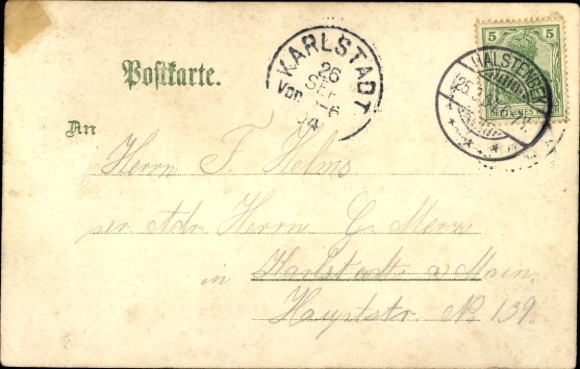 Postkarte.
An
Herrn F. Helms
per Adr. Herrn G. Merz
in Karlstadt a Main.
Hauptstr. No 139.
KARLSTADT
26
SEP
Vor. 5-6
04
5 5
HALSTENBEK
25.9.
DEUTSCHES